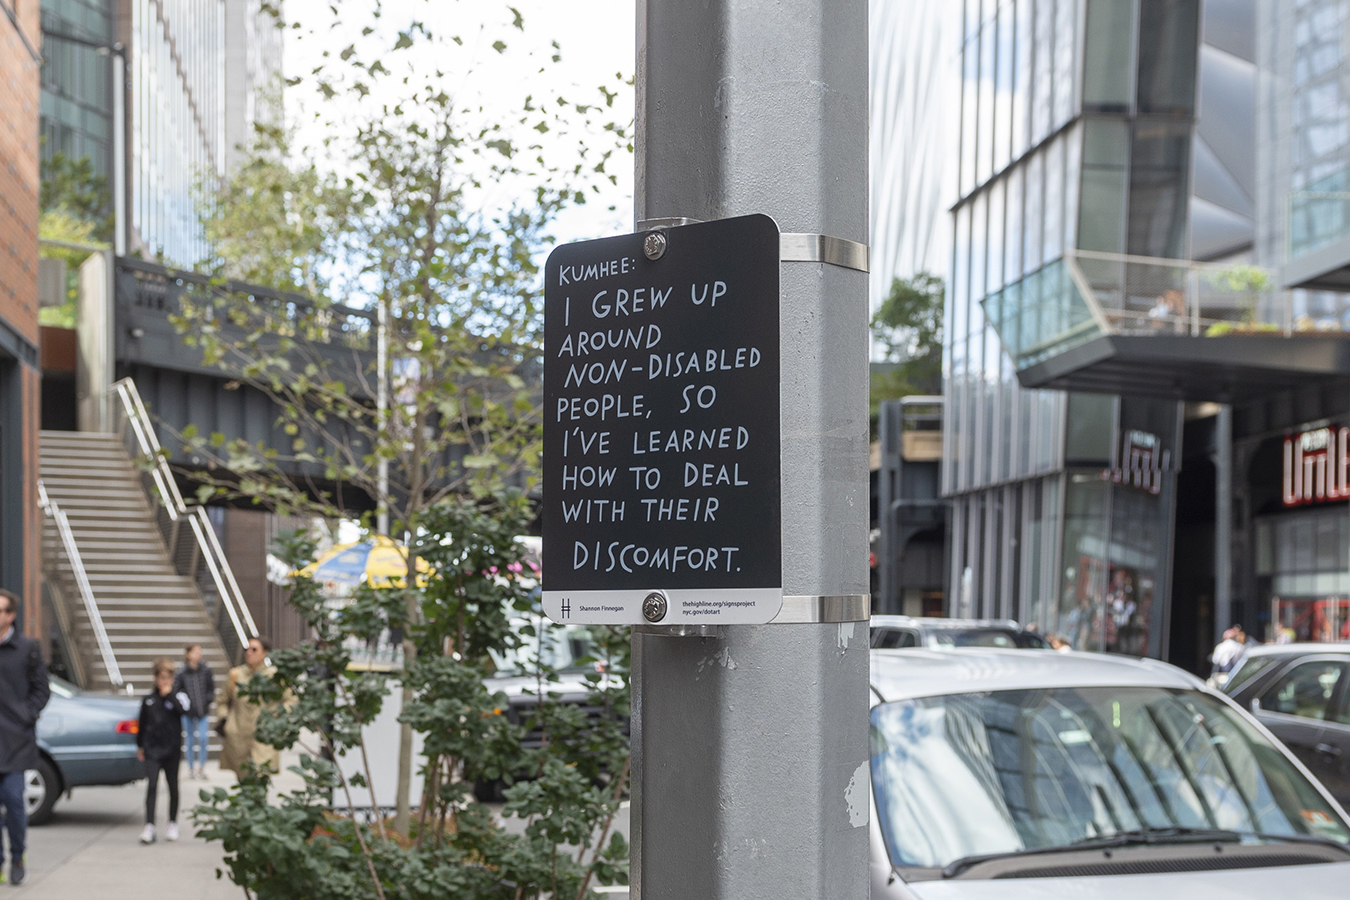 KUMHEE:
I GREW UP
AROUND
NON-DISABLED
PEOPLE, SO
I'VE LEARNED
HOW TO DEAL
WITH THEIR
DISCOMFORT.
Shannon Finnegan
thehighline.org/signsproject
nyc.gov/dotart